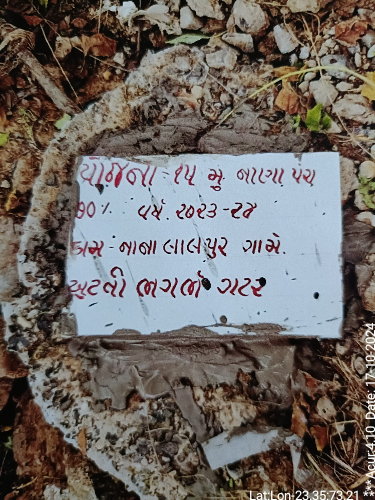 યોજના ૧૫ મુ નાણા પંચ
૧૦% વર્ષ ૨૦૨૩-૨૪
કામ નાના લાલપુર ગામે.
ખુટતી ભુગર્ભ ગટર
Lat:Lon-23,35:73,21 ***
Acur:4.10 Date: 17-10-2024